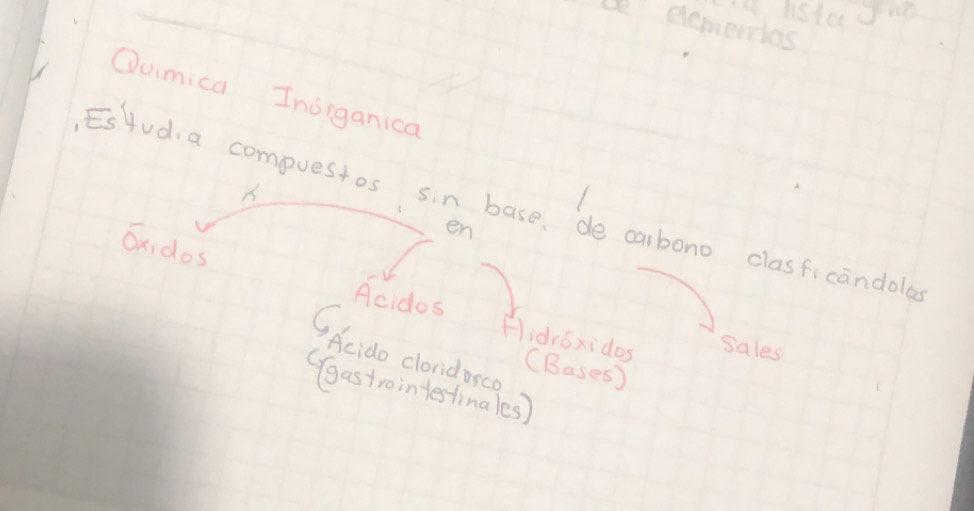 lista
elementos
Química Inórganica
Estudia compuestos sin base de carbono clasficándolas
en
Óxidos
Ácidos
Hidróxidos
(Bases)
Sales
Ácido cloridorco
(gastrointestinales)